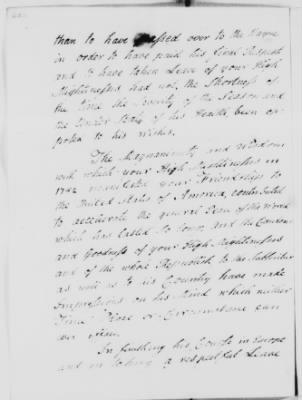 than to have passed over to the Hague
in order to have paid his final Respects
and to have taken Leave of your High
Mightinesses had not, the Shortness of
the Time the Severity of the Season and
the tender State of his Health, been op
posed to his Wishes.
The Magnanimity and Wisdom
with which your High Mightinesses in
1782 manifested your Friendship to
the United States of America, contributed
to accelerate the general Peace of the World
which has lasted so long, and the Candour
and Goodness of your High Mightinesses
and of the whole Republick to the Subscriber
as well as to his Country have made
Impressions on his Mind which neither
Time, Place or Circumstance can
ever
In finishing his Course in Europe
and in taking a respectful Leave